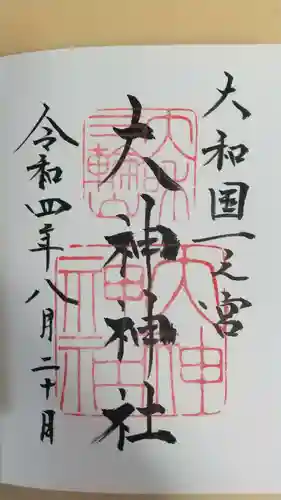 大和国一之宮
大神神社
令和四年八月二十日
大和
三輪山
大神
神社